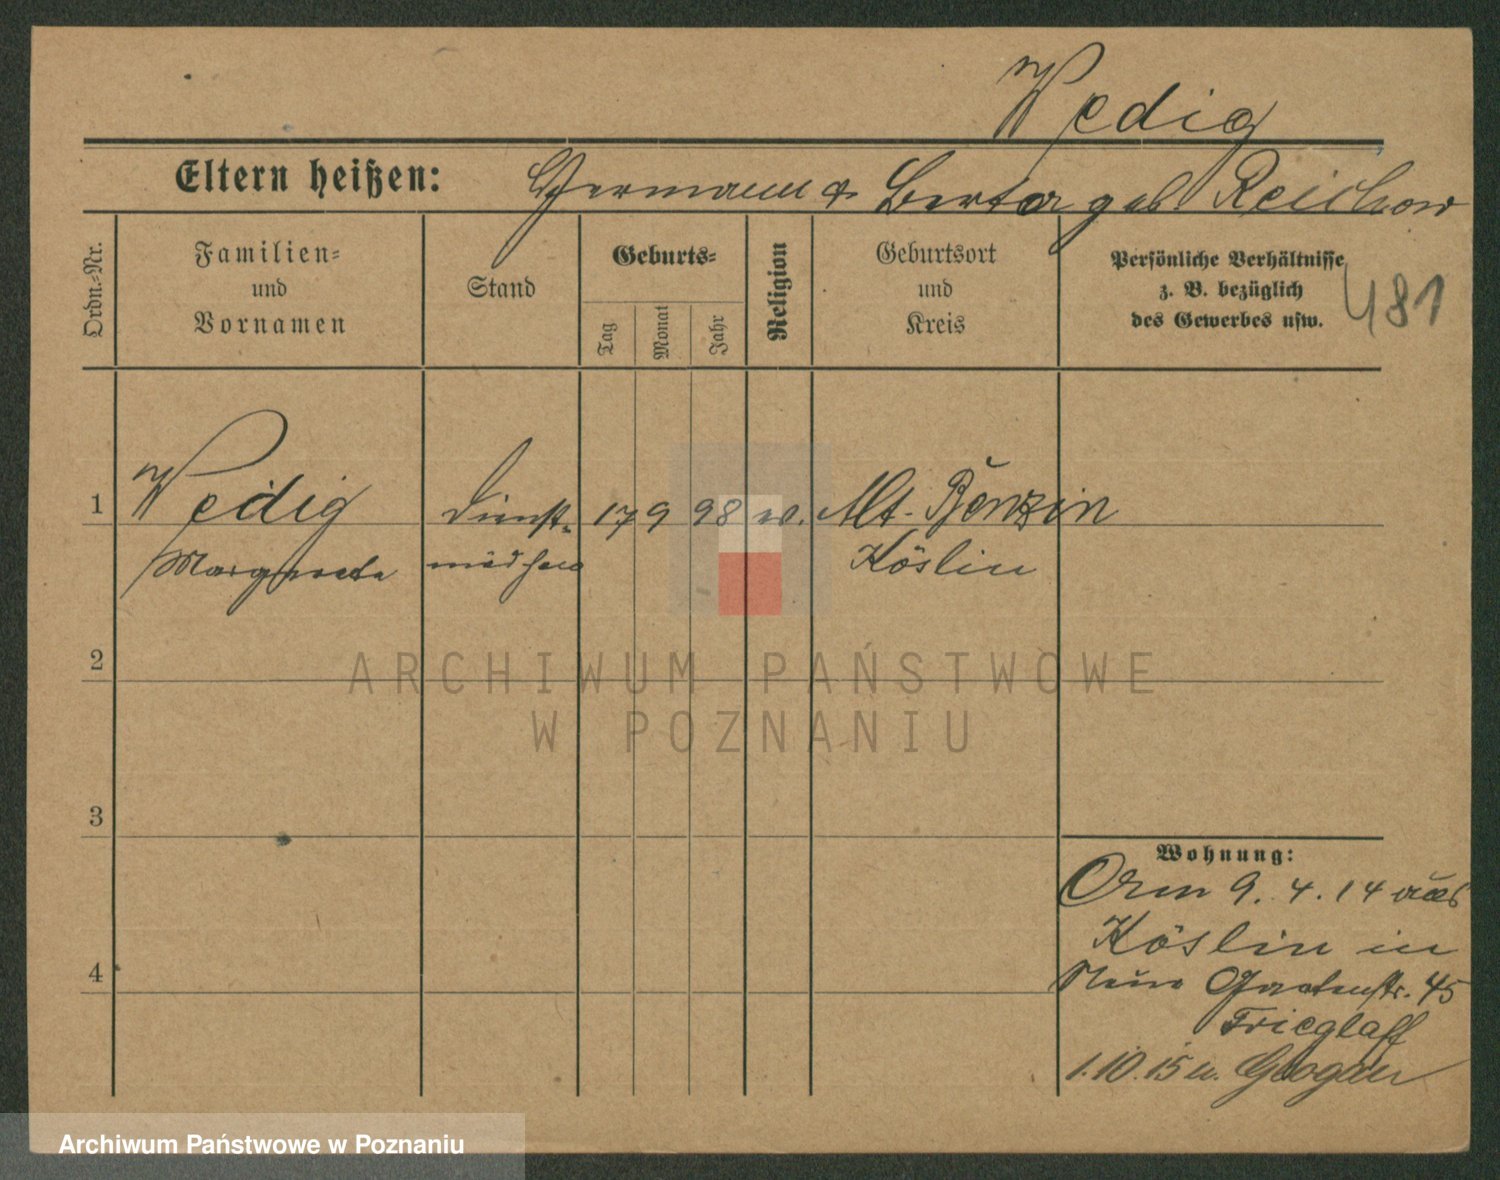 Wedig
Eltern heißen: Hermann & Berta geb. Reichow
Ordn.-Nr.
Familien-
und
Vornamen
Stand
Geburts-
Tag
Monat
Jahr
Religion
Geburtsort
und
Kreis
Persönliche Verhältnisse
z. B. bezüglich
des Gewerbes usw.
481
1 Wedig Dienst- 17 9 98 ev. Alt-Benzin
Margarete mädchen Köslin
2
3
4
Wohnung:
9. 4. 14 aus
Köslin in
Neue Gartenstr. 45
Frieglaff
1.10.15 n. Glogau
ARCHIWUM PAŃSTWOWE
W POZNANIU
Archiwum Państwowe w Poznaniu